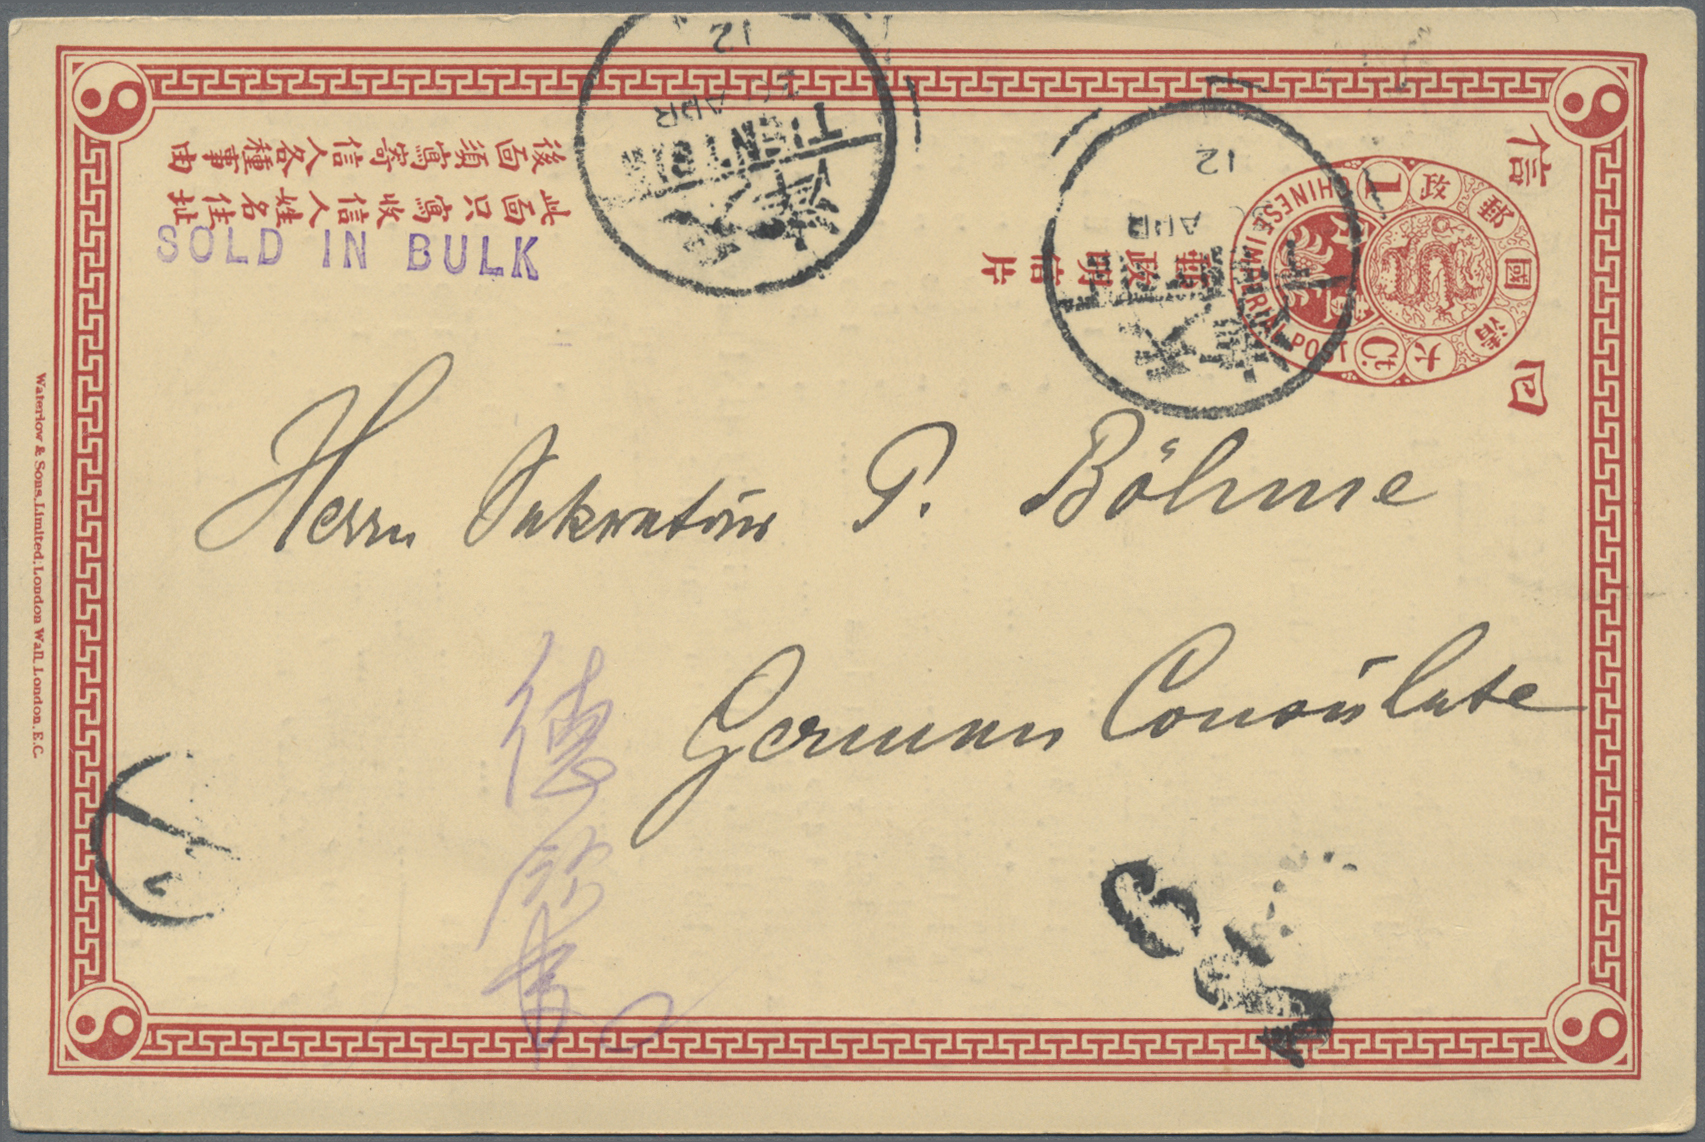 信
回
CHINESE IMPERIAL POST
大清國郵政
1
Ct.
郵政明信片
此面只寫收信人姓名住址
後面須寫寄信人各種事由
SOLD IN BULK
12
APR
TIENTSIN
天津
12
APR
天津
Herrn Sekretär P. Böhme
German Consulate
德
Waterlow & Sons, Limited, London Wall, London, E.C.